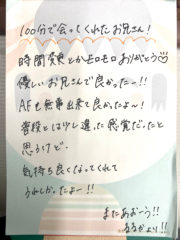 100分で会ってくれたお兄さん!
時間変更とかモロモロありがとう♡
優しいお兄さんで良かったー!!
AFも無事出来て良かったよ〜!
普段とは少し違った感覚だったと
思うけど、
気持ち良くなってくれて
うれしかったよー!!
またあおーう!!
るるかより!!